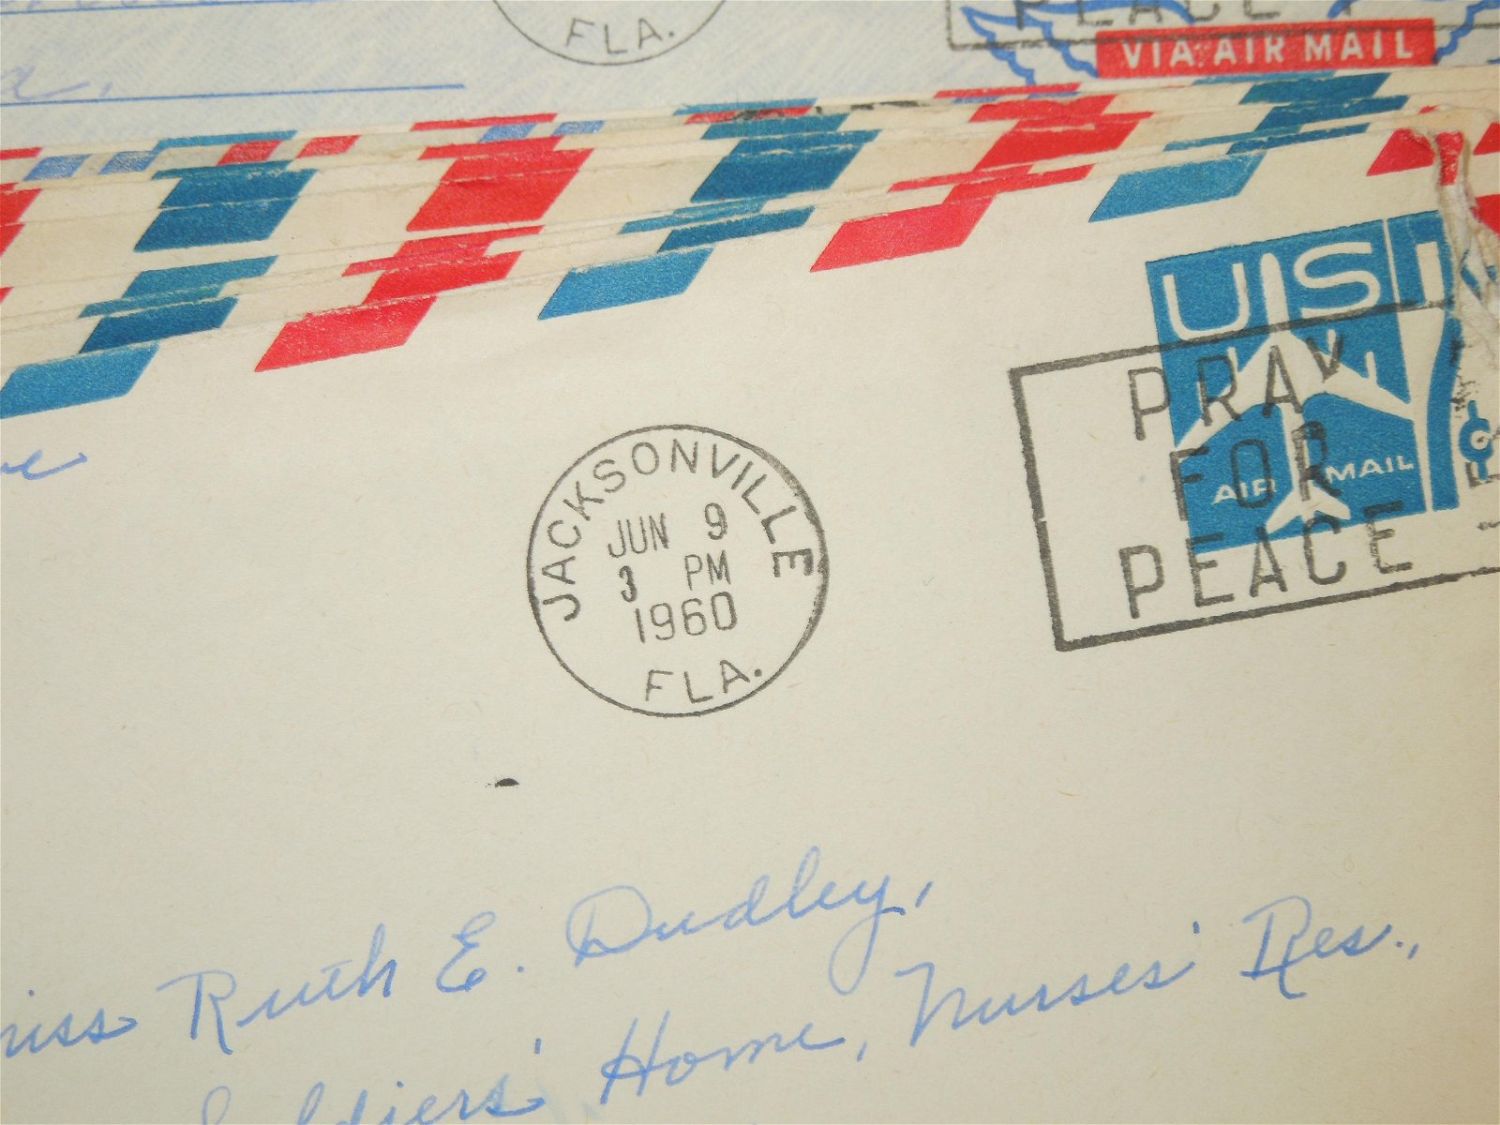 FLA.
PEACE
VIA AIR MAIL
US
AIR MAIL
JACKSONVILLE
JUN 9
3 PM
1960
FLA.
PRAY
FOR
PEACE
Miss Ruth E. Dudley,
Soldiers' Home, Nurses' Res.,